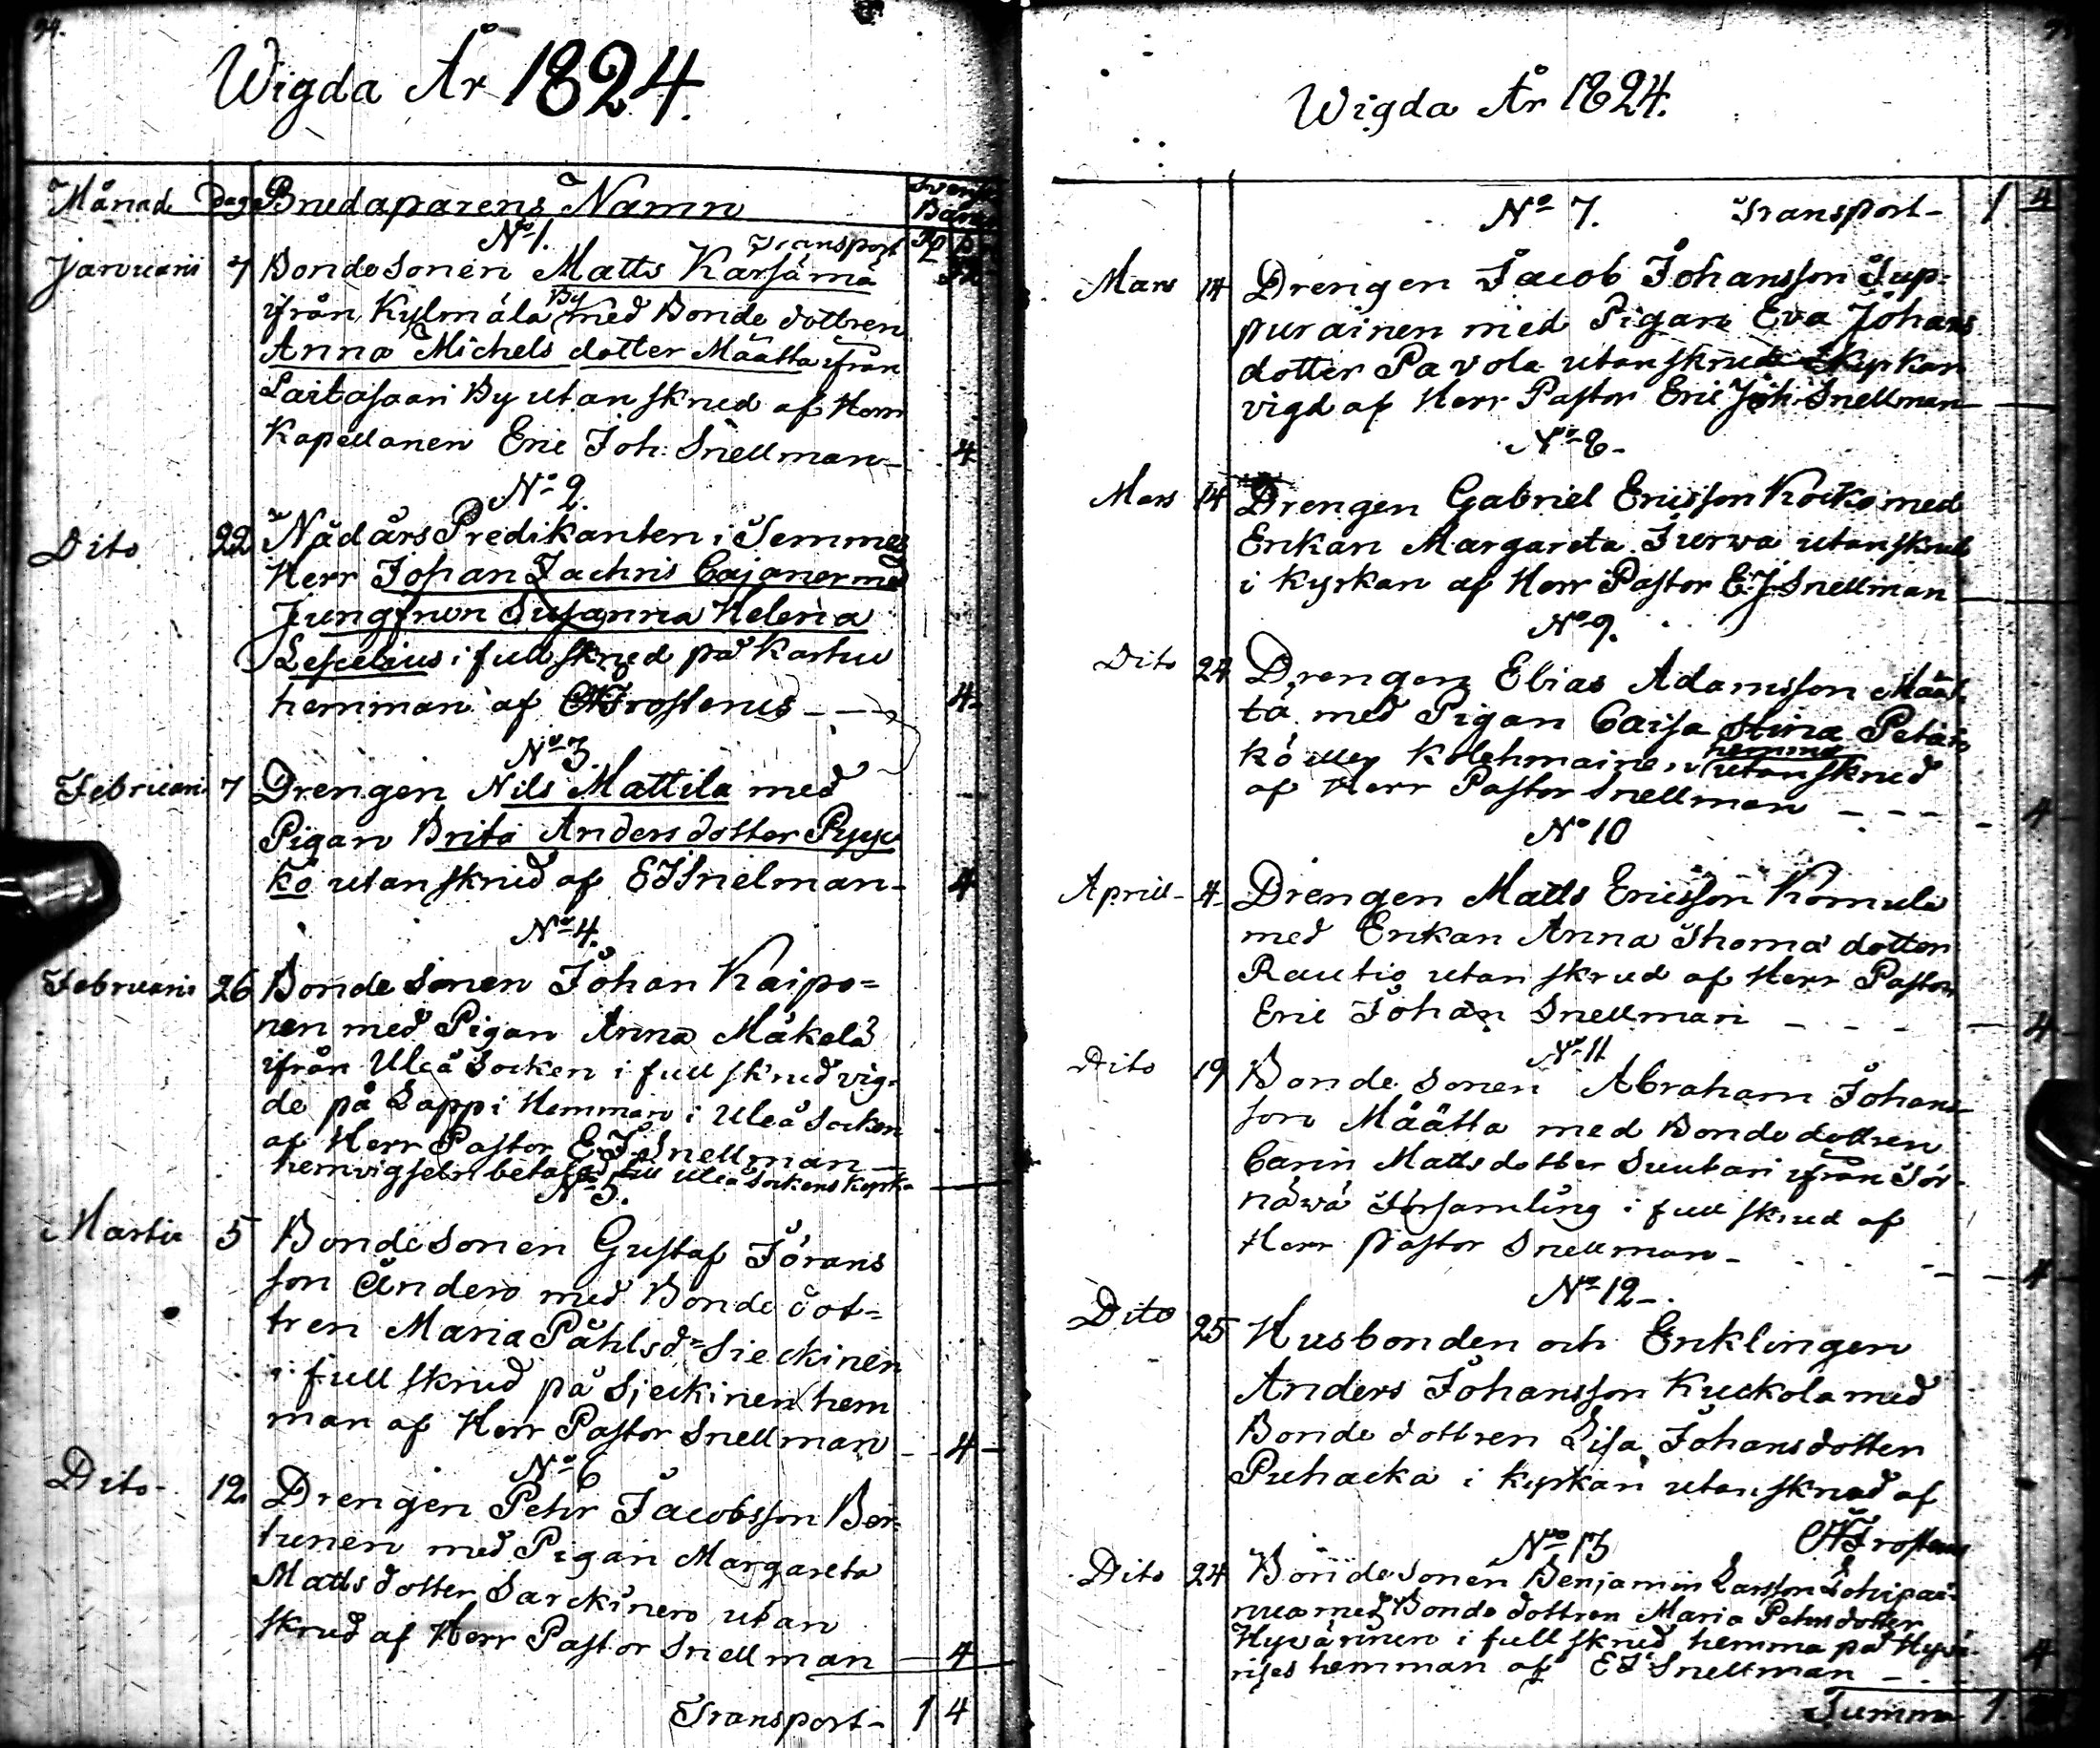 94.
Wigda År 1824.
Månad Dag Brudaparens Namn Svensk Banco
No 1. Transport Rd
Januarii 7 Bonde Sonen Matts Karsämä
ifrån Kylmälä By med Bonde dottren
Anna Michels dotter Määtta ifrån
Laitasaari By utan skrud af Herr
Kapellanen Eric Joh: Snellman - 4
No 2.
Dito 22 Nådårs Predikanten i Temmes
Herr Johan Zachris Cajaner med
Jungfrun Susanna Helena
i full skrud på Karhu
hemman af Frosterus - - 4
No 3.
Februarii 7 Drengen Nils Mattila med
Pigan Brita Anders dotter Pyyk
kö utan skrud af EJSnelman - 4
No 4.
Februarii 26 Bonde Sonen Johan Kaipo=
nen med Pigan Anna Mäkelä
ifrån Uleå Socken i full skrud vig-
de på Lappi Hemman i Uleå Socken
af Herr Pastor E. J. Snellman -
hemvigseln betalad till Uleå Sockens Kyrk-
No 5.
Martii 5 Bonde Sonen Gustaf Jörans
son Anders med Bonde dot=
tren Maria Påhlsdr Sieckinen
i full skrud på Sieckinen hem
man af Herr Pastor Snellman - 4 -
No 6
Dito - 12 Drengen Pehr Jacobsson Ber-
tunen med Pigan Margareta
Matts dotter Sarckinen utan
skrud af Herr Pastor Snellman - 4
Transport - 1 4
Wigda År 1824.
No 7. Transport - 1 4
Mars 14 Drengen Jacob Johansson Jup-
purainen med Pigan Eva Johans
dotter Pavola utan skrud i Kyrkan
vigd af Herr Pastor Eric Joh: Snellman -
No 8 -
Mars 14 Drengen Gabriel Ericsson Koiko med
Enkan Margareta Jurwa utan skrud
i Kyrkan af Herr Pastor E. J. Snellman
No 9.
Dito 24 Drengen Elias Adamsson Määt-
tä med Pigan Caisa Stina
Kolehmainen hemma utan skrud
af Herr Pastor Snellman - - - - 4
No 10
Aprill - 4 - Drengen Matts Ericsson Komula
med Enkan Anna Thoma dotter
Rautio utan skrud af Herr Pastor
Eric Johan Snellman - - - - 4
No 11
Dito 19 Bonde Sonen Abraham Johans-
son Määtta med Bonde dottren
Carin Matts dotter Suutari ifrån Tör-
näwä Församling i full skrud af
Herr Pastor Snellman - - - 4
No 12 -
Dito 25 Husbonden och Enklingen
Anders Johansson Kuckola med
Bonde dottren Lisa Johans dotter
Puhacka i Kyrkan utan skrud af
Frosterus
No 13
Dito 24 Bonde Sonen Benjamin Larsson
med Bonde dottren Maria Pehrs dotter
Hyvärinen i full skrud hemma på Hyvä-
rises hemman af EJ Snellman - 4
Summa 1